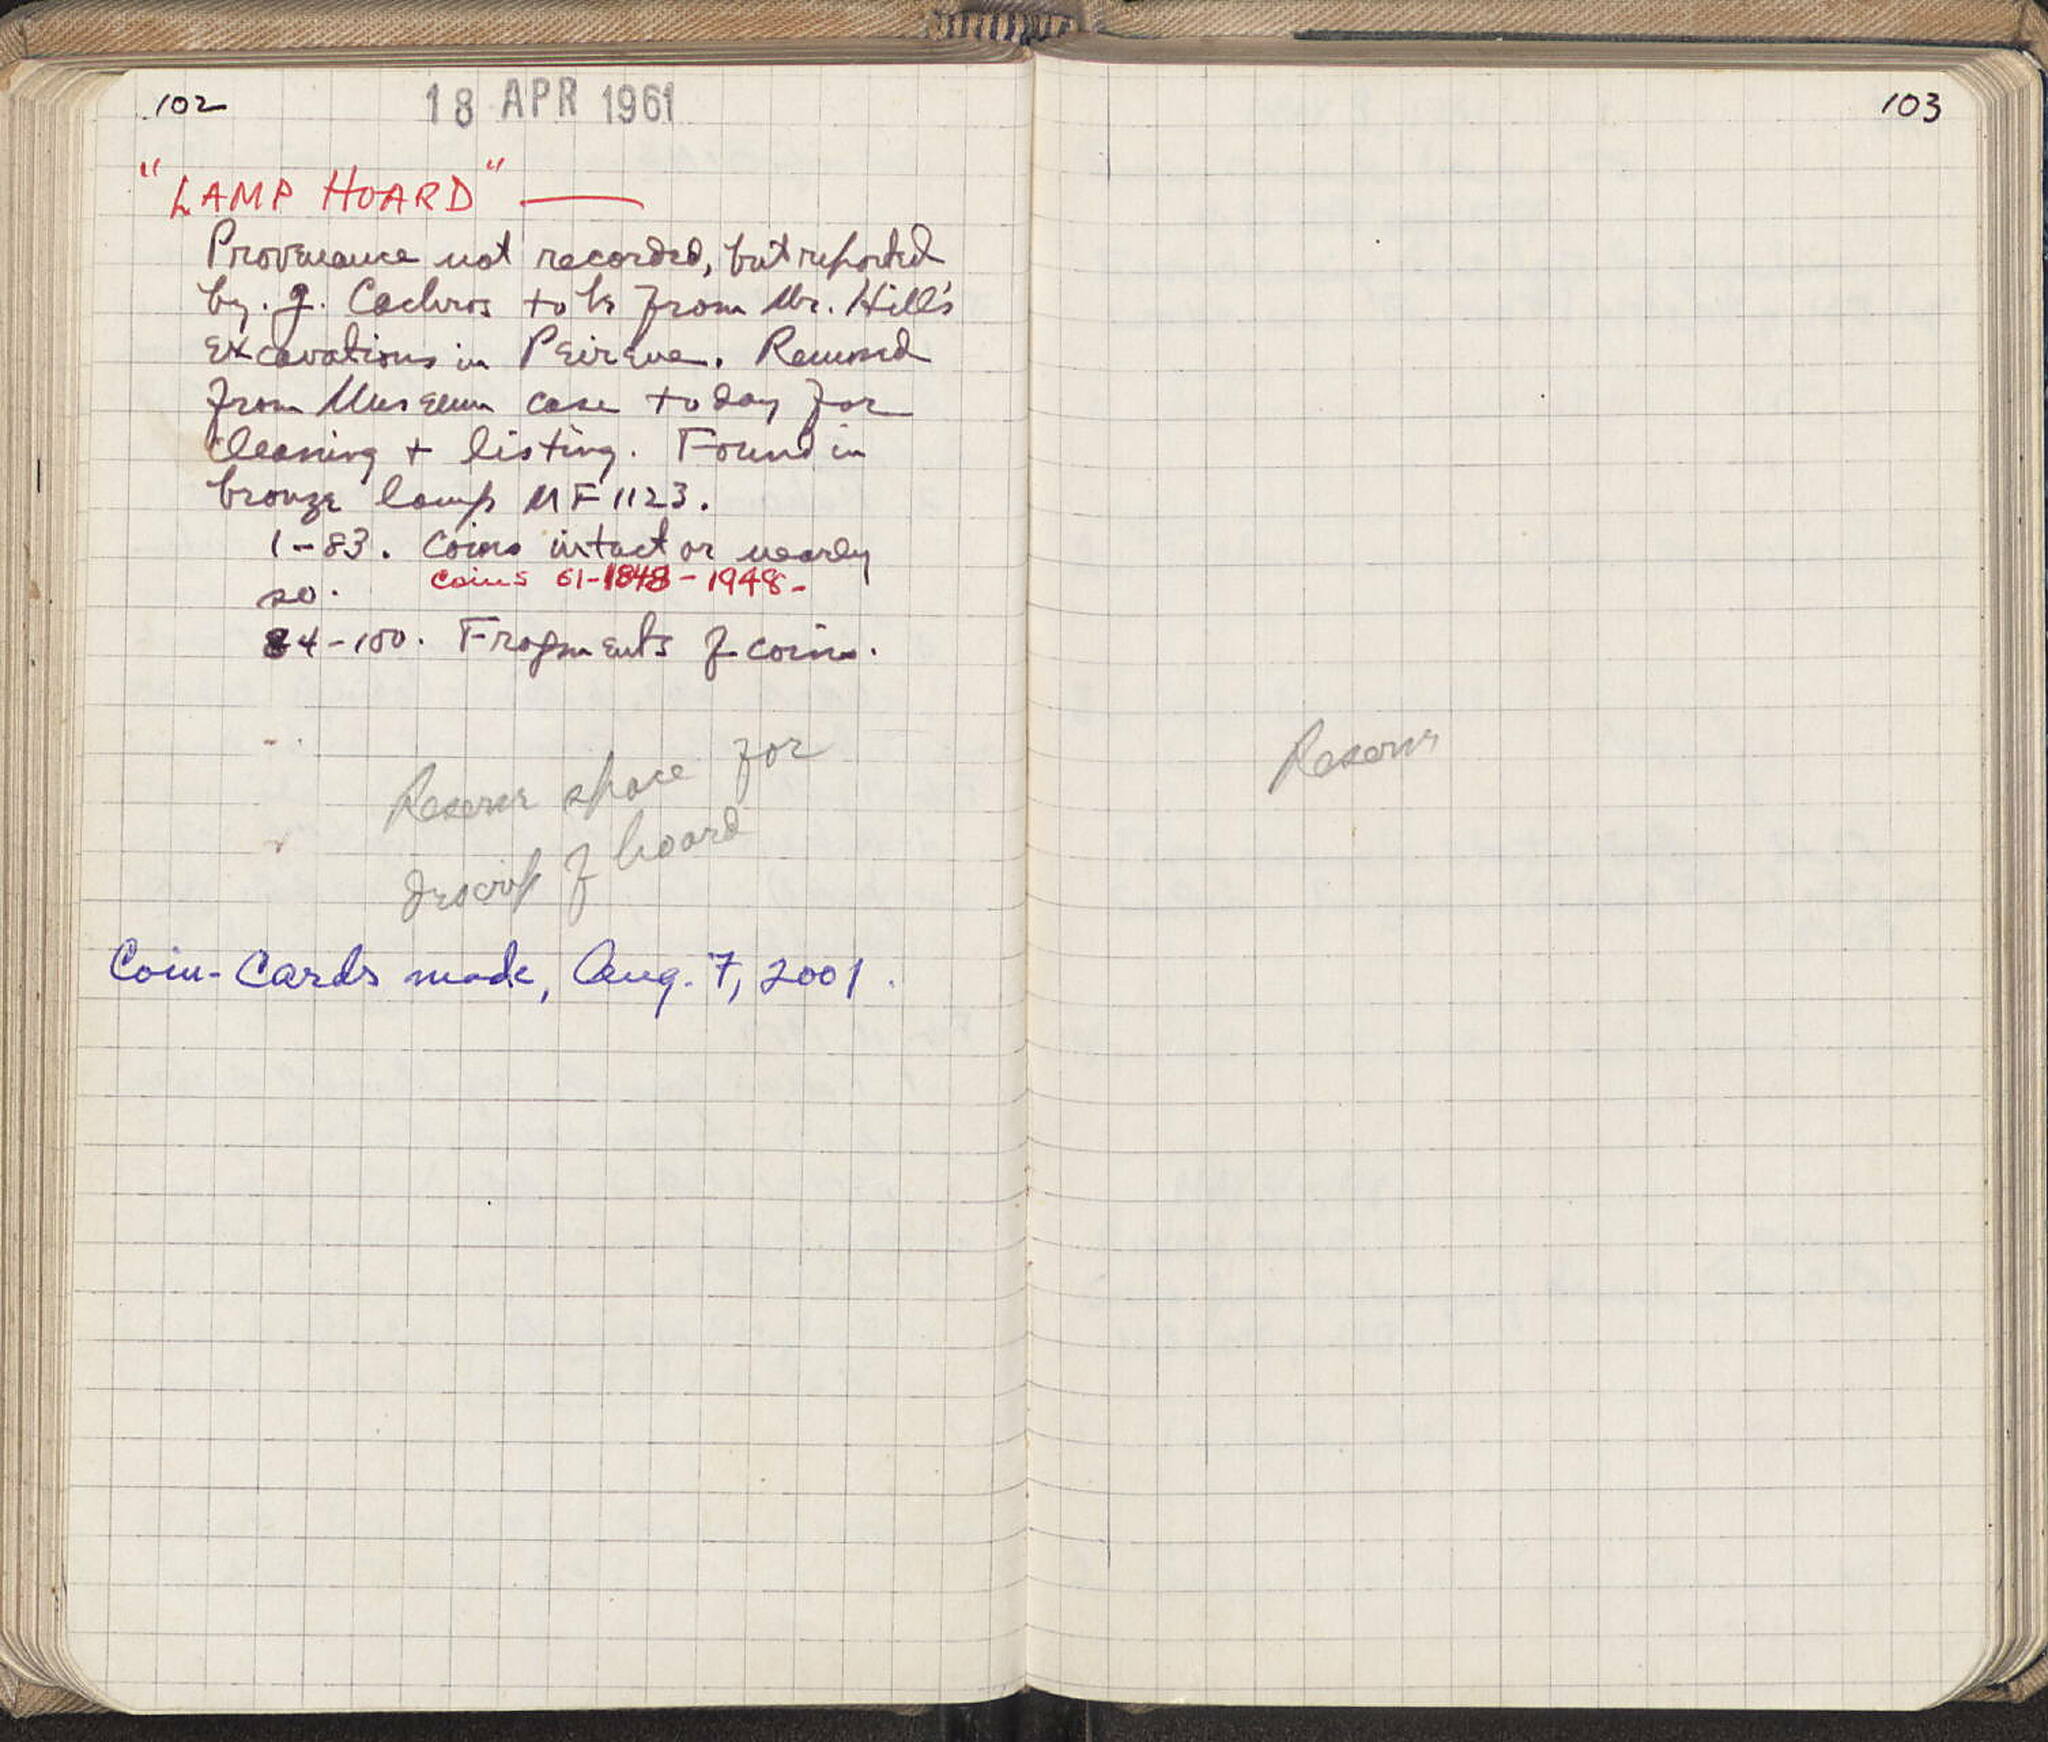 102
18 APR 1961
"LAMP HOARD" —
Provenance not recorded, but reported
by. G. Cachros to be from Mr. Hill's
excavations in Peirene. Removed
from Museum case today for
cleaning + listing. Found in
bronze lamp MF 1123.
1-83. Coins intact or nearly
so. Coins 61-1848-1948-
84-100. Fragments of coins.
Reserve space for
descrip of hoard
Coin-Cards made, Aug. 7, 2001.
103
Reserve